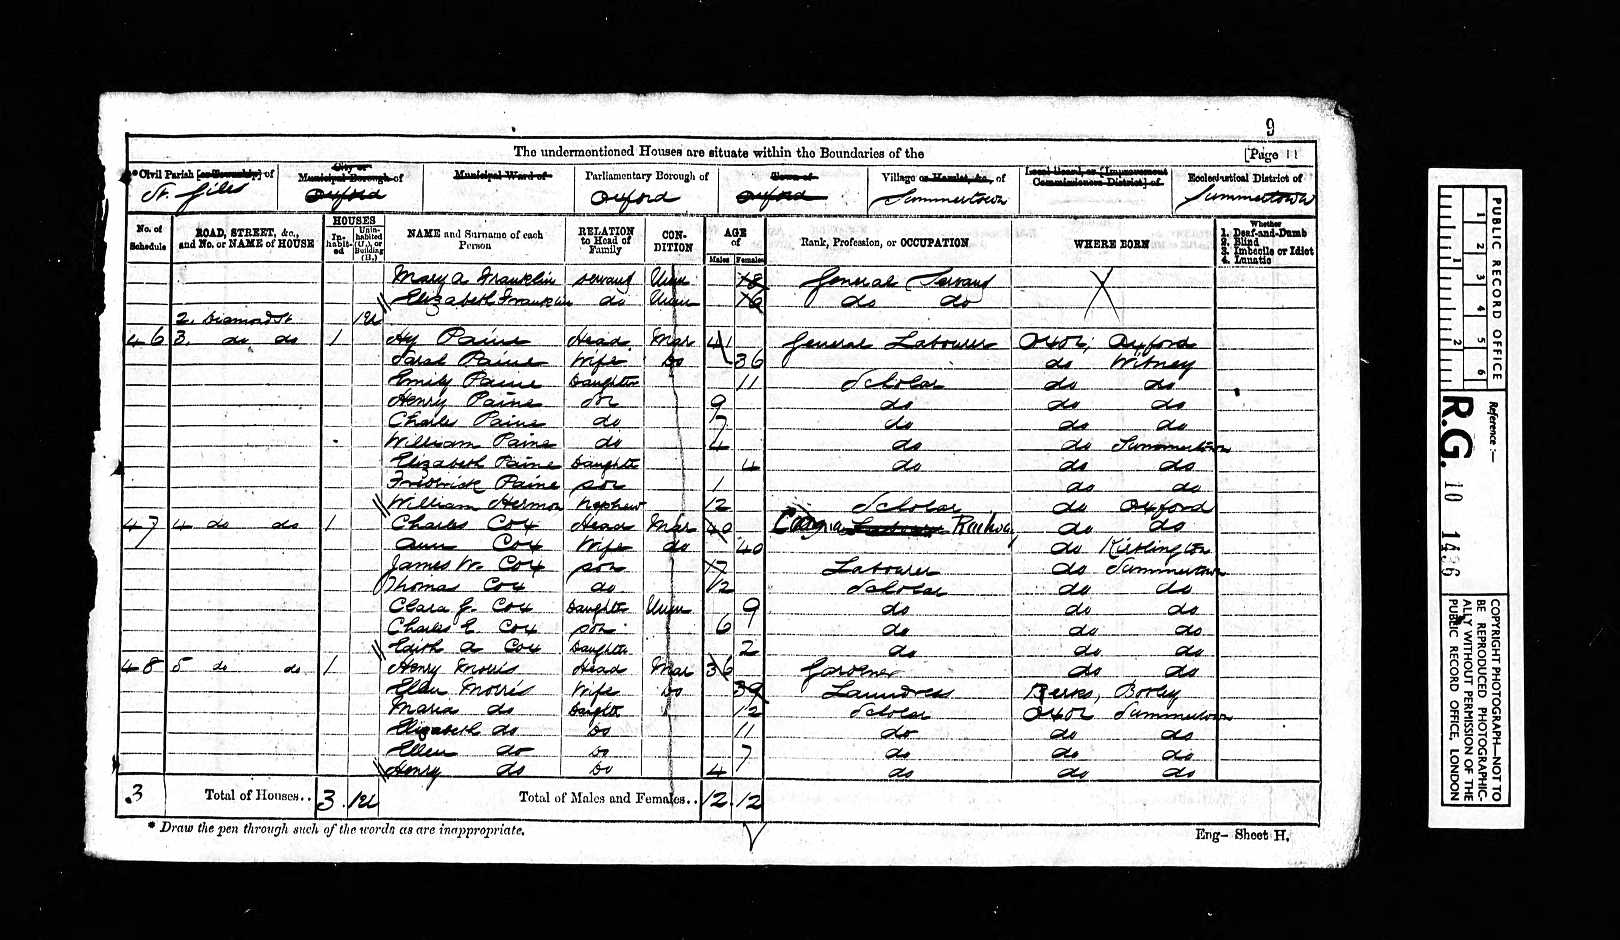 9
The undermentioned Houses are situate within the Boundaries of the [Page 11
* Civil Parish [or Township] of
St. Giles
City or Municipal Borough of
Oxford
Municipal Ward of
Parliamentary Borough of
Oxford
Town of
Oxford
Village or Hamlet, &c., of
Summertown
Local Board, or [Improvement Commissioners District] of
Ecclesiastical District of
Summertown
No. of Schedule
ROAD, STREET, &c., and No. or NAME of HOUSE
HOUSES
In-habit-ed
Unin-habited (U.), or Building (B.)
NAME and Surname of each Person
RELATION to Head of Family
CON-DITION
AGE of
Males Females
Rank, Profession, or OCCUPATION
WHERE BORN
Whether
1. Deaf-and-Dumb
2. Blind
3. Imbecile or Idiot
4. Lunatic
Mary A Franklin Servant Unm 18 General Servant
Elizabeth Franklin do Unm 16 do do
2. Diamond St 1U
46 3. do do 1 Hy Paine Head Mar 41 General Labourer Oxon, Oxford
Sarah Paine Wife Do 36 do Witney
Emily Paine Daughter 11 Scholar do do
Henry Paine Son 9 do do do
Charles Paine do 7 do do do
William Paine do 4 do do Summertown
Elizabeth Paine Daughter 4 do do do
Frederick Paine Son 1 do do
William Hermon Nephew 12 Scholar do Oxford
47 4 do do 1 Charles Cox Head Mar 40 Railway do do
Ann Cox Wife do 40 do Kirtlington
James W. Cox Son 17 Labourer do Summertown
Thomas Cox do 12 Scholar do do
Clara J. Cox Daughter Unm 9 do do do
Charles E. Cox Son 6 do do do
Edith A Cox Daughter 2 do do do
48 5 do do 1 Henry Morris Head Mar 36 Gardener do do
Ellen Morris Wife Do 39 Laundress Berks, Botley
Maria do Daughter 12 Scholar Oxon Summertown
Elizabeth do Do 11 do do do
Ellen do Do 7 do do do
Henry do Do 4 do do do
3 Total of Houses.. 3 1U Total of Males and Females.. 12 12
* Draw the pen through such of the words as are inappropriate.
Eng- Sheet H.
PUBLIC RECORD OFFICE
1 2 3 4 5 6
1 2
Reference :—
R.G. 10 1436
COPYRIGHT PHOTOGRAPH—NOT TO
BE REPRODUCED PHOTOGRAPHIC-
ALLY WITHOUT PERMISSION OF THE
PUBLIC RECORD OFFICE, LONDON